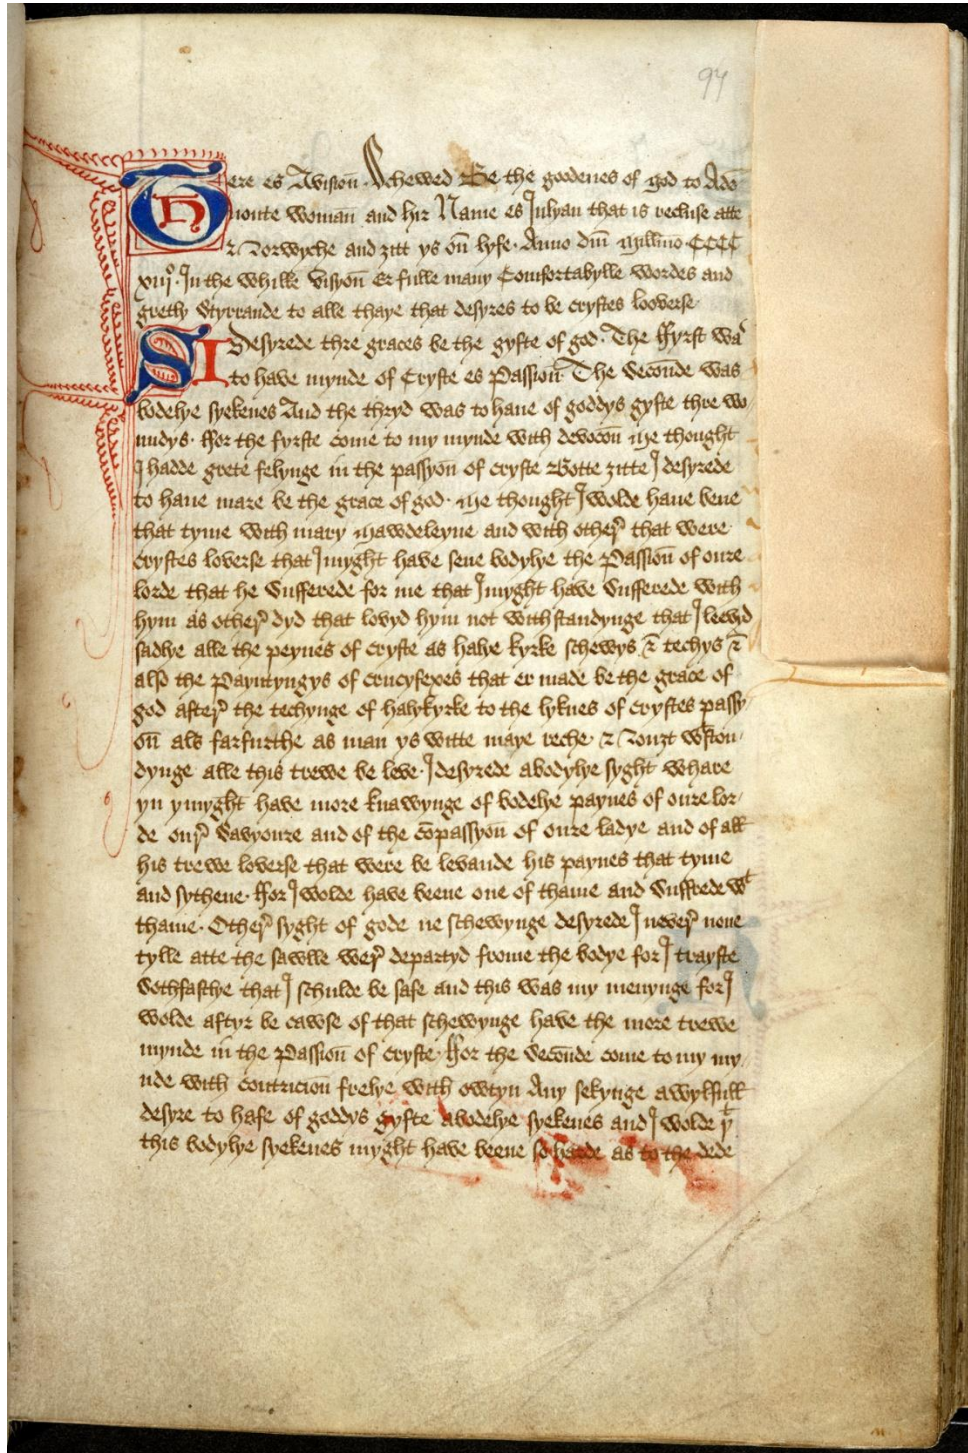 97
Here es Avisioun Schewed Be the goodenes of god to Ado
uoute womañ and hir Name es Julyan that is recluse atte
Norwyche and ȝitt ys oñ lyfe. Anno dm̄ millīmo CCCC
xiijº. In the whilke visyoñ Er fulle many Comfortabylle wordes and
gretly Styrrande to alle thaye that desyres to be crystes looverse
I Desyrede thre graces be the gyfte of god. The ffyrst wa
to have mynde of Cryste es Passioñ. The Secōnde was
bodelye syekenes And the thryd was to haue of goddys gyfte thre wo
undys. ffor the fyrste come to my mynde with devocōn me thought
I hadde grete felynge in the passyoñ of cryste Botte ȝitte I desyrede
to haue mare be the grace of god. me thought I wolde haue bene
that tyme with mary mawdeleyne and with otheʳ that were
crystes loverse that I myght have sene bodylye the Passioñ of oure
lorde that he Sufferede for me that I myght have Sufferede with
hym as otheʳ dyd that lovyd hym not withstandynge that I leevyd
sadlye alle the peynes of cryste as halye kyrke schewys & techys &
also the Payntyngys of crucyfexes that er made be the grace of
god afteʳ the techynge of halykyrke to the lyknes of crystes passy
oñ als farfurthe as man ys witte maye reche & Nouȝt wᵗston
dynge alle this trewe be leve. I desyrede abodylye syght whare
yn y myght have more knawynge of bodelye paynes of oure lor
de ouʳ Savyoure and of the cōpassyoñ of oure ladye and of all
his trewe loverse that were be levande his paynes that tyme
and sythene. ffor I wolde have beene one of thame and Suffrede wᵗ
thame. Otheʳ syght of gode ne schewynge desyrede I neveʳ none
tylle atte the sawlle weʳ departyd frome the bodye for I trayste
Sothfastlye that I schulde be safe and this was my menynge for I
wolde aftyr be cawse of that schewynge have the more trewe
mynde in the Passioñ of cryste. ffor the Secōnde come to my my
nde with contricioñ frelye with owtyn Any sekynge a wylfull
desyre to hafe of goddys gyfte abodelye syekenes and I wolde yᵗ
this bodylye syekenes myght have beene so harde as to the dede